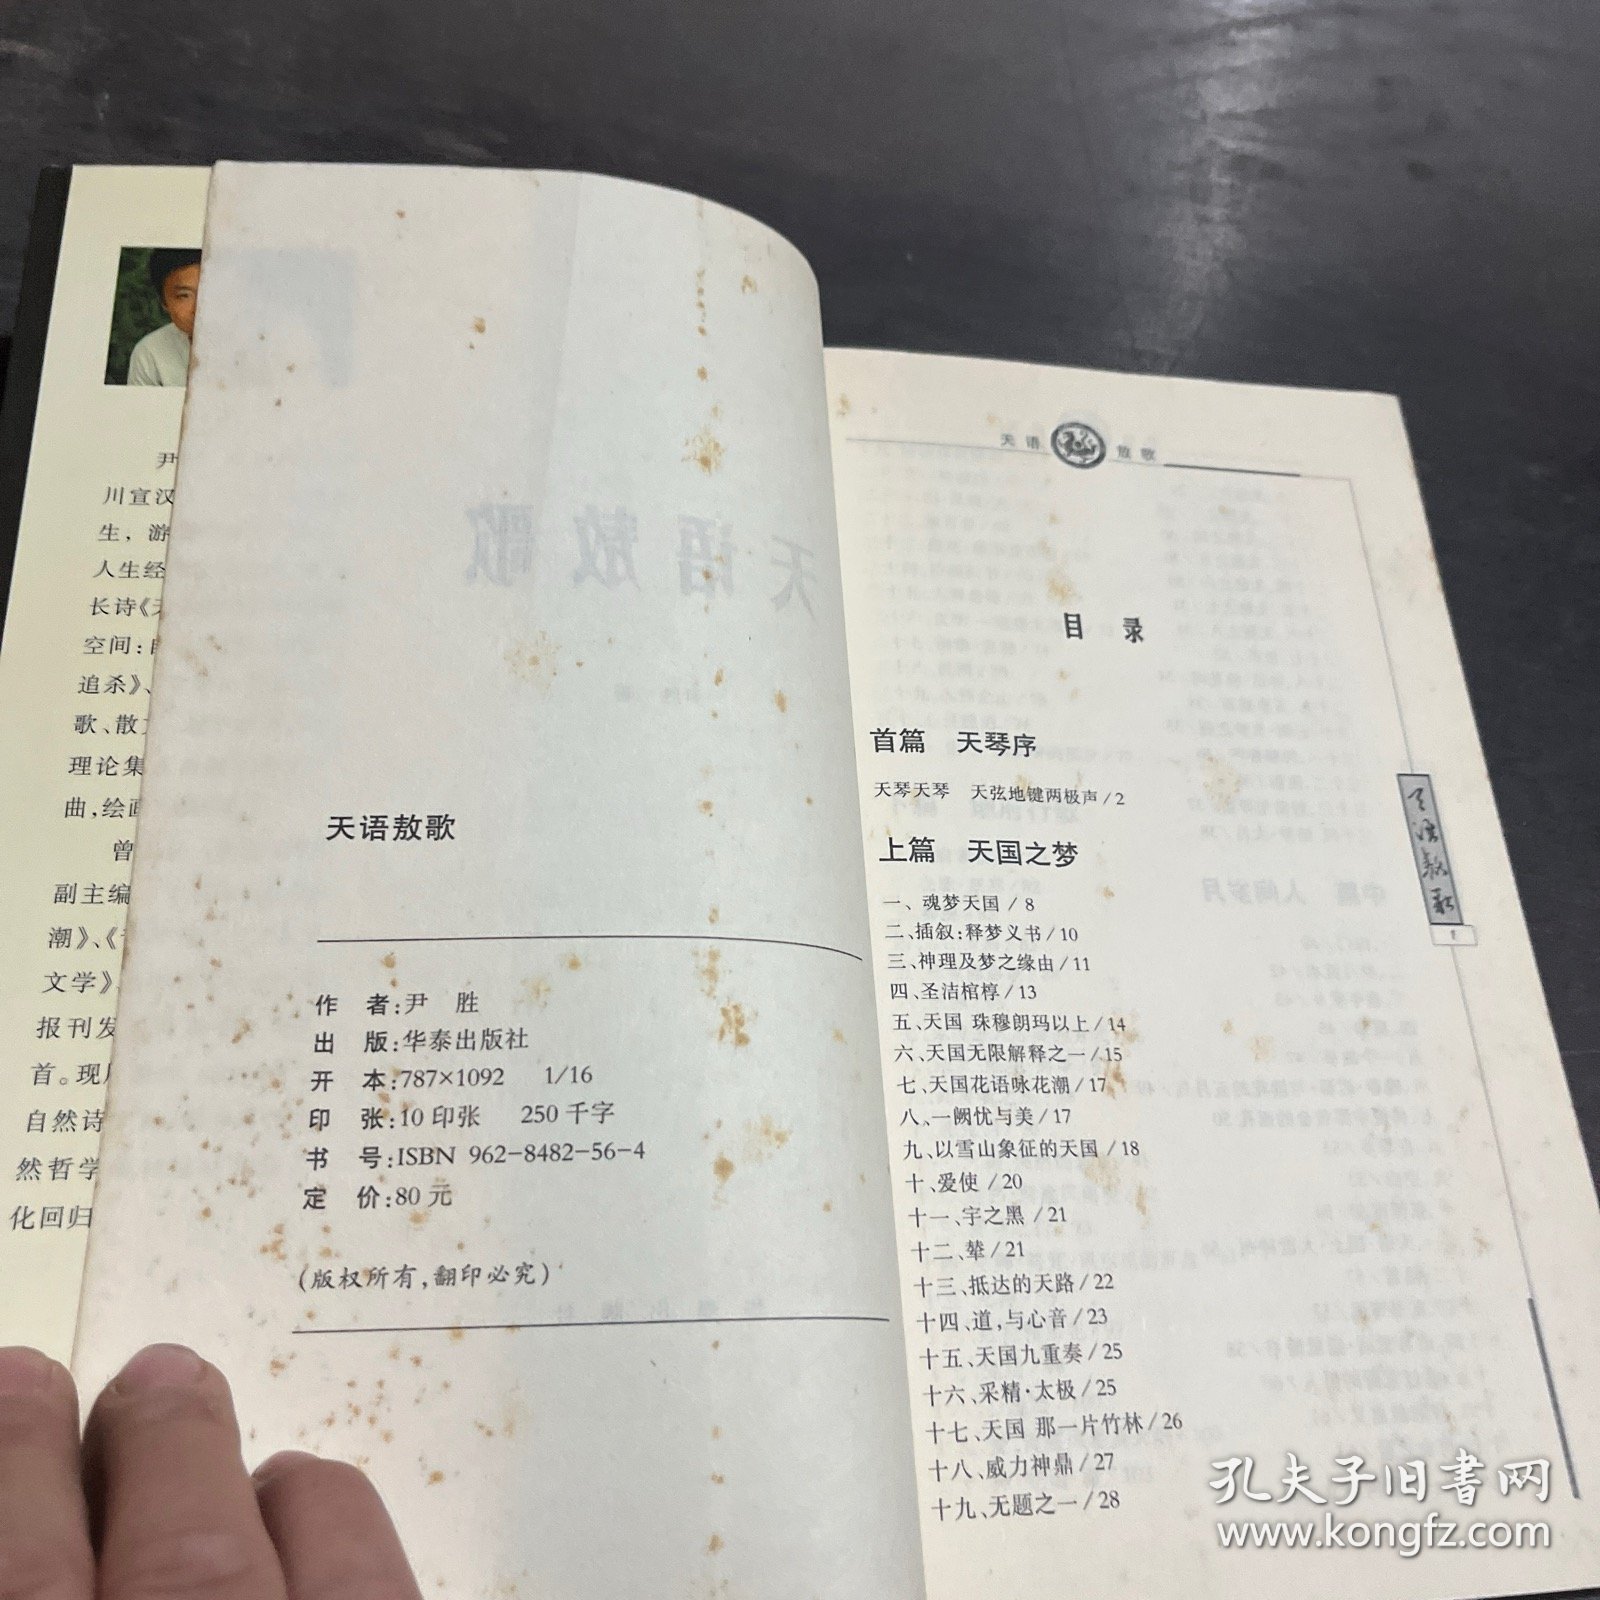 尹
川宣汉
生，游
人生经
长诗《天
空间：
追杀》、
歌、散文
理论集
曲，绘画
曾
副主编
潮》、《
文学》
报刊发
首。现
自然诗
然哲学
化回归
天语敖歌
作 者：尹 胜
出 版：华泰出版社
开 本：787×1092 1/16
印 张：10印张 250千字
书 号：ISBN 962-8482-56-4
定 价：80元
（版权所有，翻印必究）
天语 敖歌
目 录
首篇 天琴序
天琴天琴 天弦地键两极声/2
上篇 天国之梦
一、魂梦天国/8
二、插叙：释梦义书/10
三、神理及梦之缘由/11
四、圣洁棺椁/13
五、天国 珠穆朗玛以上/14
六、天国无限解释之一/15
七、天国花语咏花潮/17
八、一阙忧与美/17
九、以雪山象征的天国/18
十、爱使/20
十一、宇之黑/21
十二、辇/21
十三、抵达的天路/22
十四、道，与心音/23
十五、天国九重奏/25
十六、采精·太极/25
十七、天国 那一片竹林/26
十八、威力神鼎/27
十九、无题之一/28
天语敖歌
1
孔夫子旧书网
www.kongfz.com